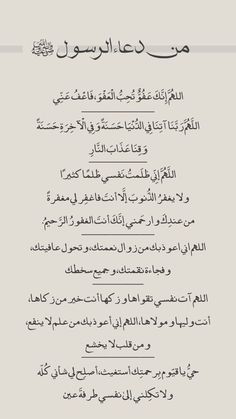 من دعاء الرسول ﷺ
اللهُمَّ إِنَّكَ عَفُوٌّ تُحِبُّ الْعَفْوَ، فَاعْفُ عَنِّي
اللَّهُمَّ رَبَّنَا آتِنَا فِي الدُّنْيَا حَسَنَةً وَفِي الْآخِرَةِ حَسَنَةً
وَقِنَا عَذَابَ النَّارِ
اللَّهُمَّ إِنِّي ظَلَمتُ نَفسي ظُلمًا كثيرًا
ولا يغفرُ الذُّنوبَ إلَّا أنتَ فاغفِر لي مغفرةً
من عندِكَ وارحَمني إنَّكَ أنتَ الغفورُ الرَّحيمُ
اللهم اني اعوذ بك من زوال نعمتك، و تحول عافيتك،
وفجاءة نقمتك، و جميع سخطك
اللهم آت نفسي تقواها و زكها أنت خير من زكاها،
أنت وليها ومولاها، اللهم إني أعوذ بك من علم لا ينفع،
و من قلب لا يخشع
حيُّ يا قيّوم برحمتِك أستغيث، أصلِح لي شأني كُلّه
ولا تكِلني إلى نفسي طرفة عين